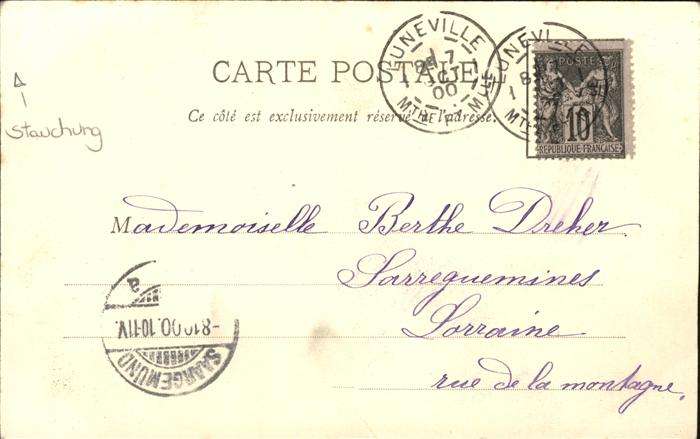 LUNEVILLE
7
OCT
00
MTHE ET MLLE
LUNEVILLE
CARTE POSTALE
Ce côté est exclusivement réservé à l'adresse.
POSTE
10
RÉPUBLIQUE FRANÇAISE
Stauchung
Mademoiselle Berthe Dreher
Sarreguemines
Lorraine
rue de la montagne.
SAARGEMUND
-8 10 00. 10-11V.
a